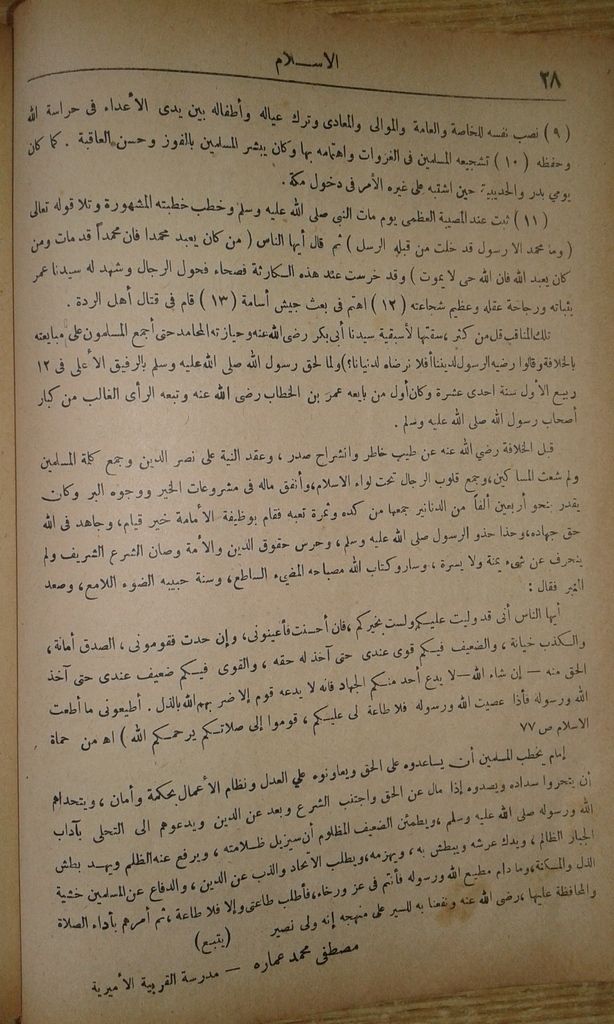 ٢٨
الاســلام
( ٩ ) نصب نفسه للخاصة والعامة والموالى والمعادى وترك عياله وأطفاله بين يدى الأعداء فى حراسة الله
وحفظه ( ١٠ ) تشجيعه المسلمين فى الغزوات واهتمامه بها وكان يبشر المسلمين بالفوز وحسن العاقبة . كما كان
يومي بدر والحديبية حين اشتبه على غيره الأمر فى دخول مكة .
( ١١ ) ثبت عند المصيبة العظمى يوم مات النبي صلى الله عليه وسلم وخطب خطبته المشهورة وتلا قوله تعالى
( وما محمد الا رسول قد خلت من قبله الرسل ) ثم قال أيها الناس ( من كان يعبد محمدا فان محمداً قد مات ومن
كان يعبد الله فان الله حى لا يموت ) وقد خرست عند هذه الـكارثة فصحاء فحول الرجال وشهد له سيدنا عمر
بثباته ورجاحة عقله وعظيم شجاعته ( ١٢ ) اهتم فى بعث جيش أسامة ( ١٣ ) قام فى قتال أهل الردة .
تلك المناقب قل من كثر ، سقتها لأسبقية سيدنا أبى بكر رضى الله عنه وحيازته المحامد حتى أجمع المسلمون على مبايعته
بالخلافة وقالوا رضيه الرسول لديننا أفلا نرضاه لدنيانا ؟) ولما لحق رسول الله صلى الله عليه وسلم بالرفيق الأعلى فى ١٢
ربيع الأول سنة احدى عشرة وكان أول من بايعه عمر بن الخطاب رضى الله عنه وتبعه الرأى الغالب من كبار
أصحاب رسول الله صلى الله عليه وسلم .
قبل الخلافة رضي الله عنه عن طيب خاطر وانشراح صدر ، وعقد النية على نصر الدين وجمع كلمة المسلمين
ولم شعث المساكين، وجمع قلوب الرجال تحت لواء الاسلام، وأنفق ماله فى مشروعات الخير ووجوه البر وكان
يقدر بنحو أربعين ألفاً من الدنانير جمعها من كده وثمرة تعبه فقام بوظيفة الأمامة خير قيام، وجاهد فى الله
حق جهاده، وحذا حذو الرسول صلى الله عليه وسلم ، وحرس حقوق الدين والأمة وصان الشرع الشريف ولم
ينحرف عن شىء يمنة ولا يسرة ، وسار وكتاب الله مصباحه المضىء الساطع، وسنة حبيبه الضوء اللامع، وصعد
المنبر فقال :
أيها الناس أنى قد وليت عليـكم ولست بخيركم ، فان أحسنت فأعينونى، وإن حدت فقومونى ، الصدق أمانة ،
والـكذب خيانة ، والضعيف فيـكم قوى عندى حتى آخذ له حقه ، والقوى فيـكم ضعيف عندى حتى آخذ
الحق منه — إن شاء الله — لا يدع أحد منـكم الجهاد فانه لا يدعه قوم إلا ضربهم الله بالذل . أطيعونى ما أطعت
الله ورسوله فأذا عصيت الله ورسوله فلا طاعة لى عليـكم ، قوموا إلى صلاتـكم يرحمـكم الله ) اه من حماة
الاسلام ص ٧٧
إمام يخطب المسلمين أن يساعدوه على الحق ويعاونوه على العدل ونظام الأعمال بحكمة وأمان ، ويتحداهم
أن يتحروا سداده ويصدوه إذا مال عن الحق واجتنب الشرع وبعد عن الدين ويدعوهم الى التحلى بآداب
الله ورسوله صلى الله عليه وسلم ، ويطمئن الضعيف المظلوم أن سيزيل ظلامته ، ويرفع عنه الظلم ويهـد بطش
الجبار الظالم ، ويدك عرشه ويبطش به ، ويهزمه، ويطلب الاتحاد والذب عن الدين ، والدفاع عن المسلمين خشية
الذل والمسكنة، وما دام مطيع الله ورسوله فأنتم فى عز ورخاء، فأطلب طاعتى وإلا فلا طاعة ، ثم أمرهم بأداء الصلاة
والمحافظة عليها ، رضى الله عنه ونفعنا به للسير على منهجه إنه ولى نصير
(يتبع)
مصطفى محمد عماره — مدرسة القربية الأميرية